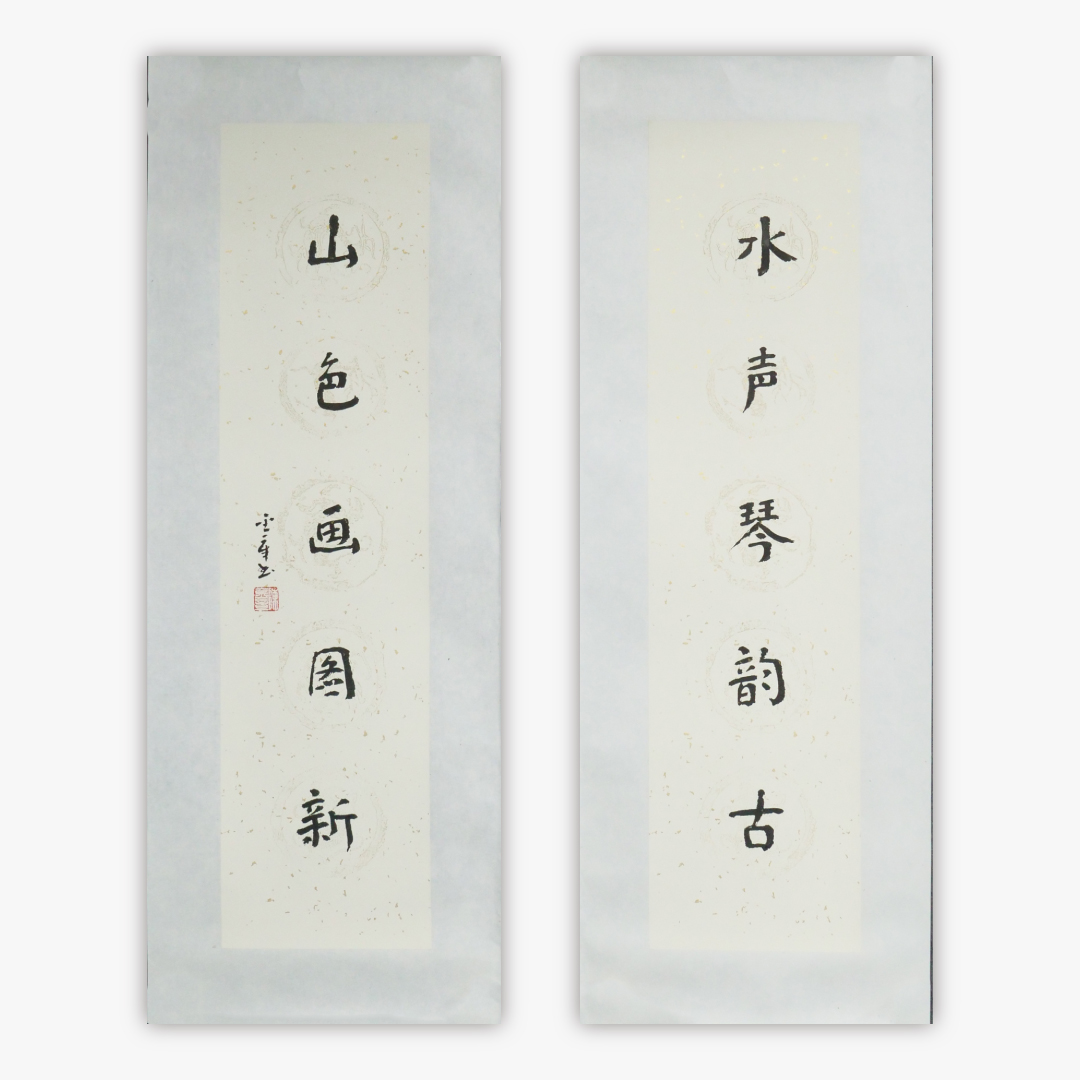 水声琴韵古
山色画图新